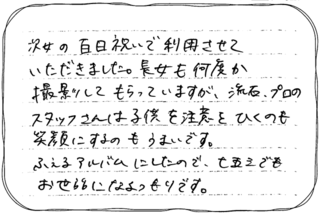 次女の百日祝いで利用させて
いただきました。長女も何度か
撮影してもらっていますが、流石、プロの
スタッフさんは子供を注意をひくのも
笑顔にするのもうまいです。
ふえるアルバムにしたので、七五三でも
お世話になるつもりです。